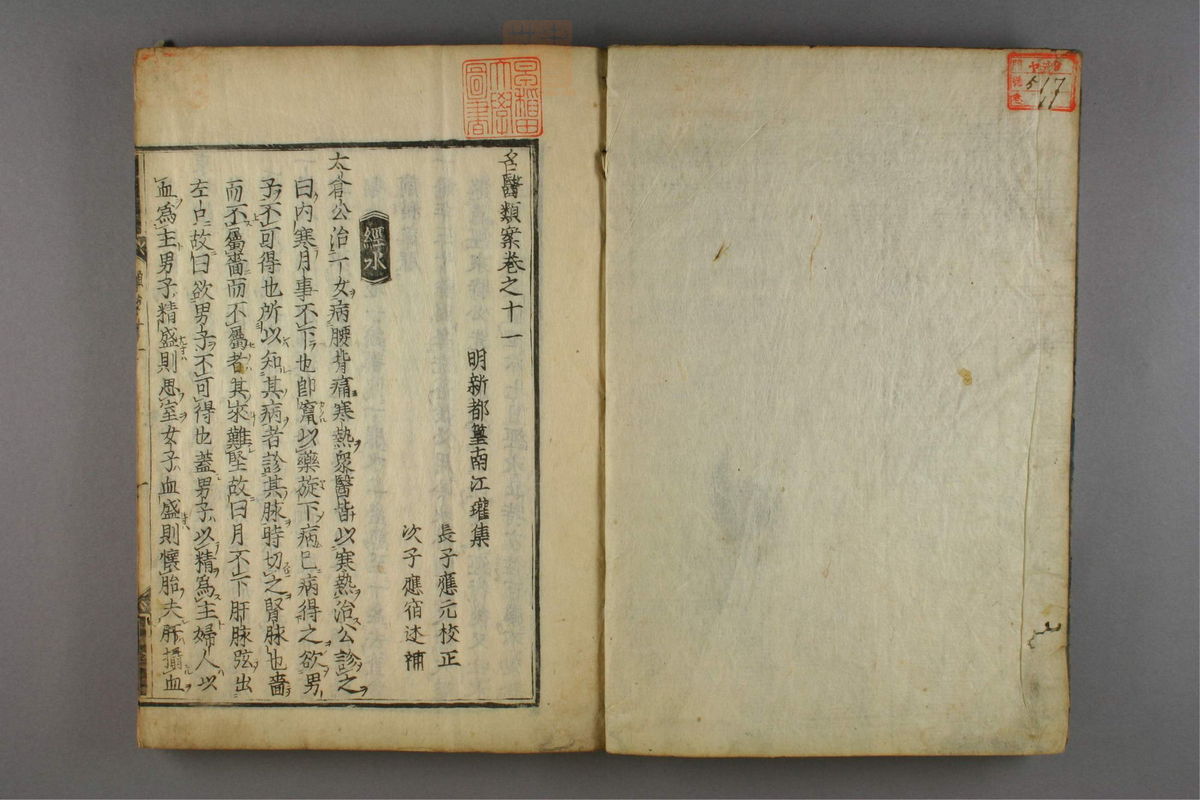 名醫類案卷之十一
明新都篁南江瓘集
長子應元校正
次子應宿述補
經水
太倉公治一女病腰背痛寒熱衆醫皆以寒熱治公診之
曰内寒月事不下也卽竄以藥旋下病已病得之欲男
子不可得也所以知其病者診其脉時切之腎脉也嗇
而不屬嗇而不屬者其來難堅故曰月不下肝脉弦出
左口故曰欲男子不可得也蓋男子以精爲主婦人以
血爲主男子精盛則思室女子血盛則懷胎夫肝攝血
早稲田
大學
圖書
517
11